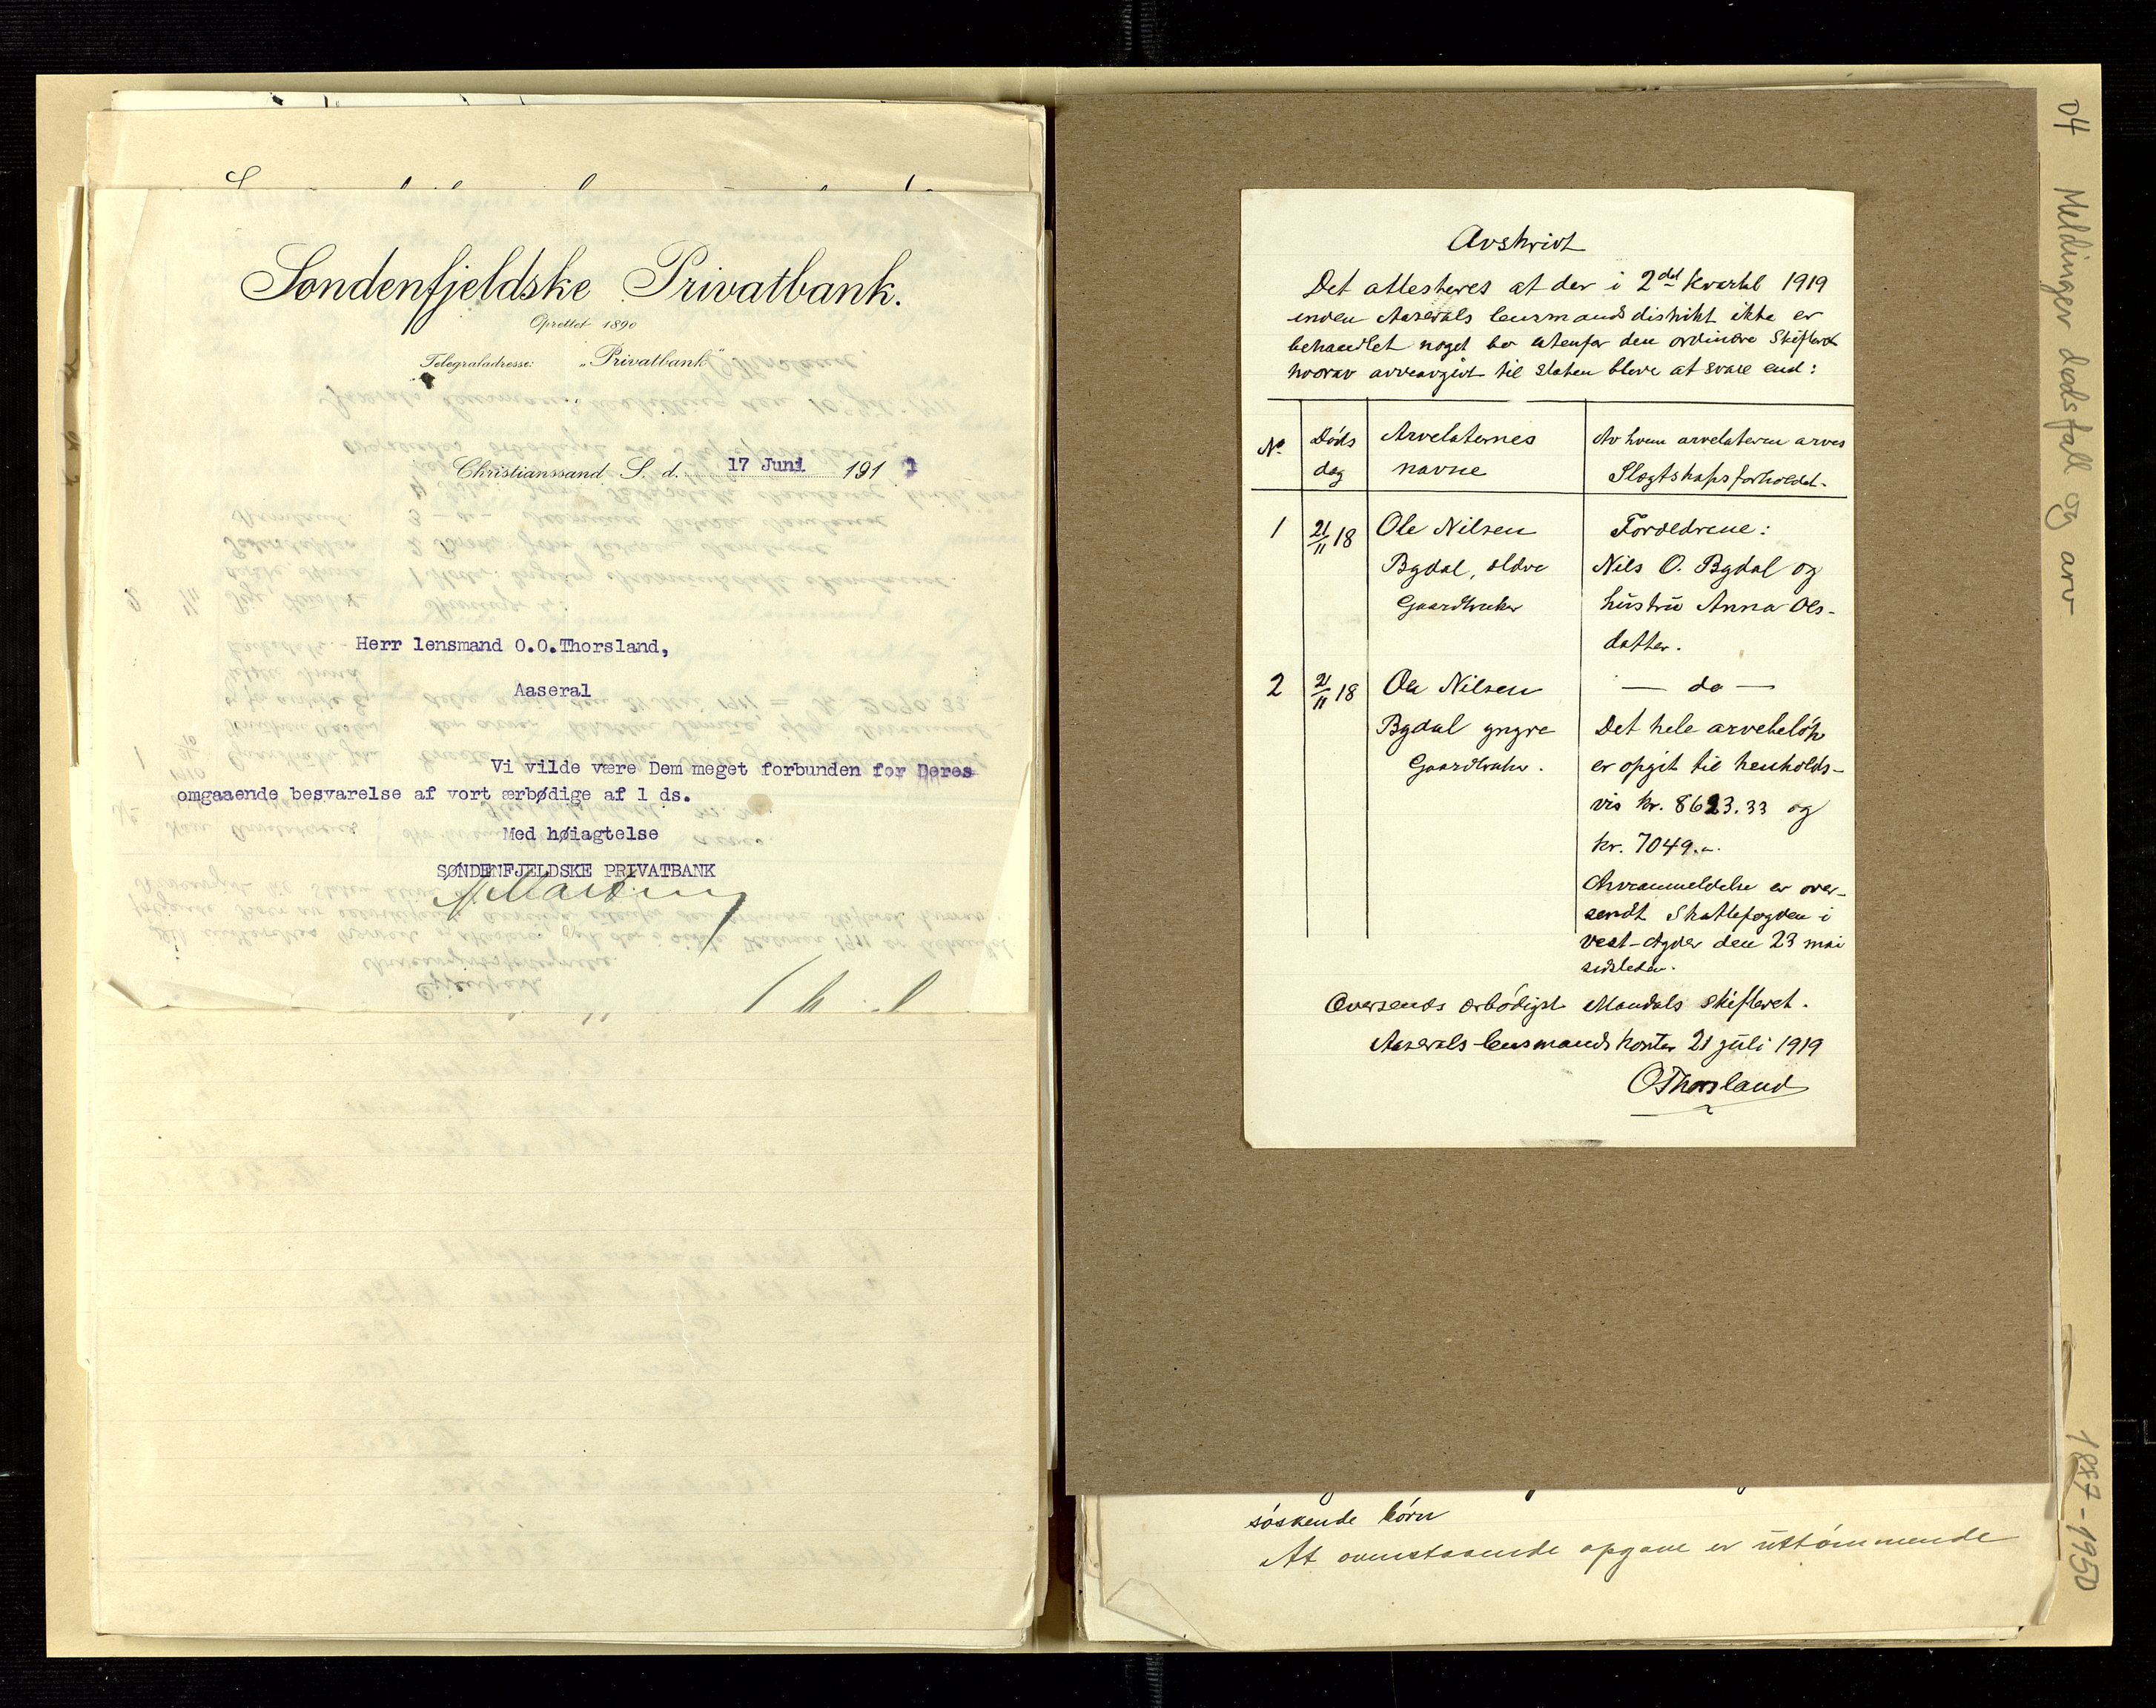 Søndenfjeldske Privatbank.
Oprettet 1890
Telegrafadresse: „Privatbank“
Christianssand S. d. 17 Juni 1911
Herr lensmand O.O.Thorsland,
Aaseral
Vi vilde være Dem meget forbunden for Deres
omgaaende besvarelse af vort ærbødige af 1 ds.
Med høiagtelse
SØNDENFJELDSKE PRIVATBANK
Avskrivt
Det attesteres at der i 2det kvartal 1919
inden Aaserals lensmandsdistrikt ikke er
behandlet noget bo utenfor den ordinære Skifteret
hvorav arveavgivt til staten blive at svare end:
No
Døds
dag
Arvelaternes
navne
Av hvem arvelateren arves
Slægtskapsforholdet.
1
21/11 18
Ole Nilsen
Bgdal, ældre
Gaardbruker
Foreldrene:
Nils O. Bgdal og
hustru Anna Ols-
datter.
2
21/11 18
Ole Nilsen
Bgdal yngre
Gaardbruker.
— do —
Det hele arvebeløp
er opgit til henholds-
vis kr. 8623.33 og
kr. 7049.-.
Arveanmeldelse er over-
sendt Skattefogden i
Vest-Agder den 23 mai
sidsleden.
Oversends ærbødigst Mandals skifteret.
Aaserals lensmandskontor 21 juli 1919
OThorsland
søskende børn
At ovenstaaende opgave er uttømmende
04 Meldinger dødsfall og arv 1887-1950